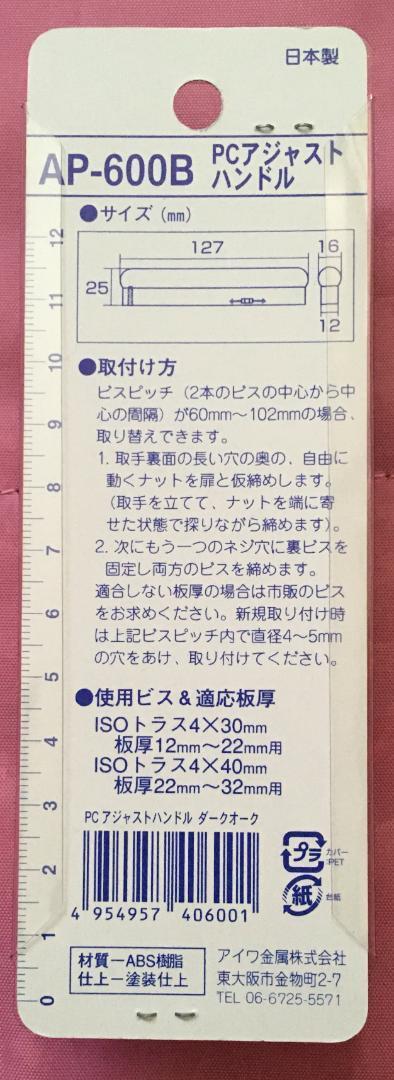 日本製
AP-600B PCアジャストハンドル
●サイズ(mm)
127
16
25
12
●取付け方
ビスピッチ(2本のビスの中心から中
心の間隔)が60mm〜102mmの場合、
取り替えできます。
1. 取手裏面の長い穴の奥の、自由に
動くナットを扉と仮締めします。
(取手を立てて、ナットを端に寄
せた状態で探りながら締めます)。
2. 次にもう一つのネジ穴に裏ビスを
固定し両方のビスを締めます。
適合しない板厚の場合は市販のビス
をお求めください。新規取り付け時
は上記ビスピッチ内で直径4〜5mm
の穴をあけ、取り付けてください。
●使用ビス&適応板厚
ISOトラス4×30mm
板厚12mm〜22mm用
ISOトラス4×40mm
板厚22mm〜32mm用
PCアジャストハンドル ダークオーク
4 954957 406001
プラ カバー:PET
紙 台紙
材質ーABS樹脂
仕上ー塗装仕上
アイワ金属株式会社
東大阪市金物町2-7
TEL 06-6725-5571
12
11
10
9
8
7
6
5
4
3
2
1
0